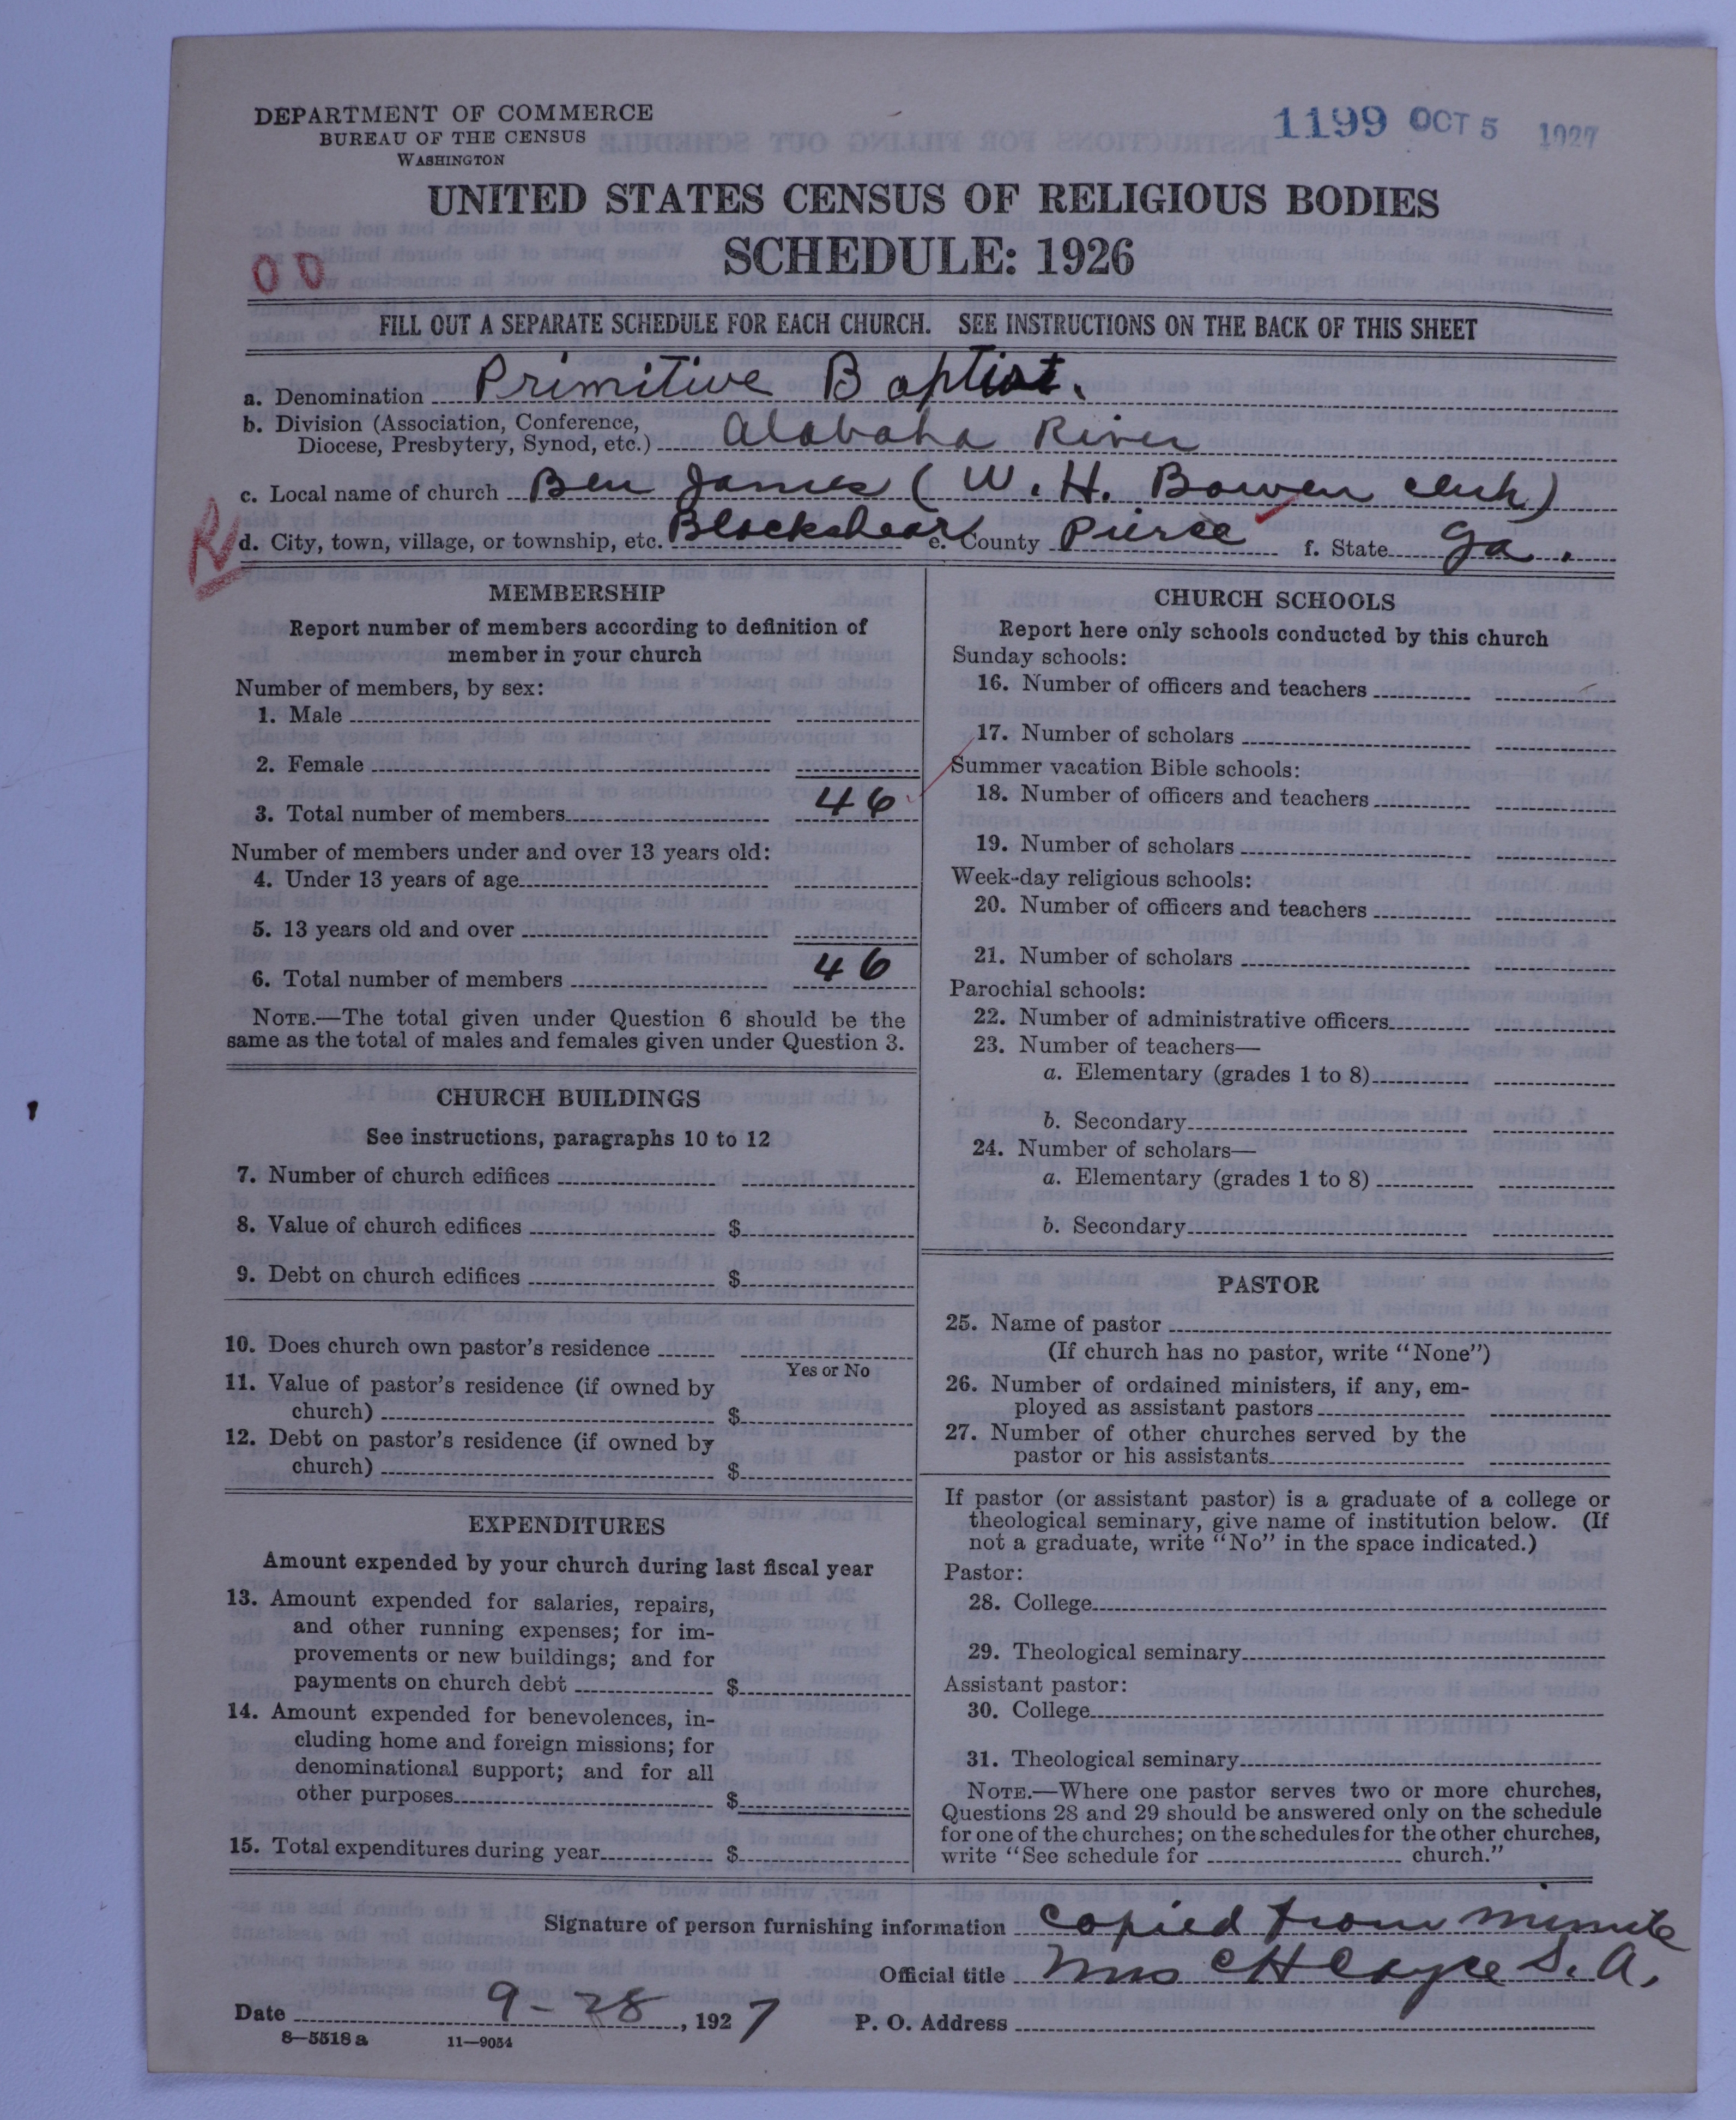 DEPARTMENT OF COMMERCE
BUREAU OF THE CENSUS
WASHINGTON
1199 OCT 5 1927
UNITED STATES CENSUS OF RELIGIOUS BODIES
SCHEDULE: 1926
FILL OUT A SEPARATE SCHEDULE FOR EACH CHURCH. SEE INSTRUCTIONS ON THE BACK OF THIS SHEET
a. Denomination Primitive Baptist.
b. Division (Association, Conference,
Diocese, Presbytery, Synod, etc.) Alabaha River
c. Local name of church Ben James (W. H. Bowen clerk)
d. City, town, village, or township, etc. Blackshear e. County Pierce f. State Ga.
MEMBERSHIP
Report number of members according to definition of
member in your church
Number of members, by sex:
1. Male
2. Female
3. Total number of members 46
Number of members under and over 13 years old:
4. Under 13 years of age
5. 13 years old and over
6. Total number of members 46
NOTE.—The total given under Question 6 should be the
same as the total of males and females given under Question 3.
CHURCH BUILDINGS
See instructions, paragraphs 10 to 12
7. Number of church edifices
8. Value of church edifices $
9. Debt on church edifices $
10. Does church own pastor's residence
Yes or No
11. Value of pastor's residence (if owned by
church) $
12. Debt on pastor's residence (if owned by
church) $
EXPENDITURES
Amount expended by your church during last fiscal year
13. Amount expended for salaries, repairs,
and other running expenses; for im-
provements or new buildings; and for
payments on church debt $
14. Amount expended for benevolences, in-
cluding home and foreign missions; for
denominational support; and for all
other purposes $
15. Total expenditures during year $
CHURCH SCHOOLS
Report here only schools conducted by this church
Sunday schools:
16. Number of officers and teachers
17. Number of scholars
Summer vacation Bible schools:
18. Number of officers and teachers
19. Number of scholars
Week-day religious schools:
20. Number of officers and teachers
21. Number of scholars
Parochial schools:
22. Number of administrative officers
23. Number of teachers—
a. Elementary (grades 1 to 8)
b. Secondary
24. Number of scholars—
a. Elementary (grades 1 to 8)
b. Secondary
PASTOR
25. Name of pastor
(If church has no pastor, write "None")
26. Number of ordained ministers, if any, em-
ployed as assistant pastors
27. Number of other churches served by the
pastor or his assistants
If pastor (or assistant pastor) is a graduate of a college or
theological seminary, give name of institution below. (If
not a graduate, write "No" in the space indicated.)
Pastor:
28. College
29. Theological seminary
Assistant pastor:
30. College
31. Theological seminary
NOTE.—Where one pastor serves two or more churches,
Questions 28 and 29 should be answered only on the schedule
for one of the churches; on the schedules for the other churches,
write "See schedule for church."
Signature of person furnishing information copied from minute
Official title Mrs C H Cayce S. A.
Date 9-28, 1927 P. O. Address
8—5518a 11—9054